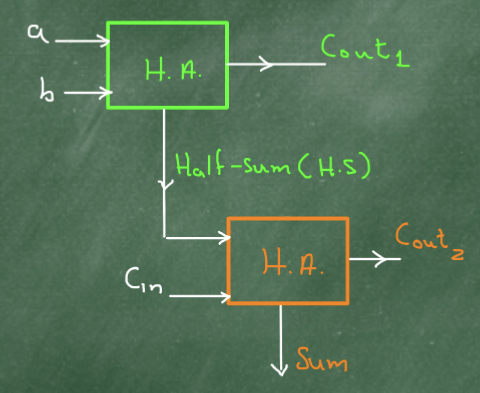 a
b
H.A.
Cout1
Half-sum(H.S)
Cin
H.A.
Cout2
Sum